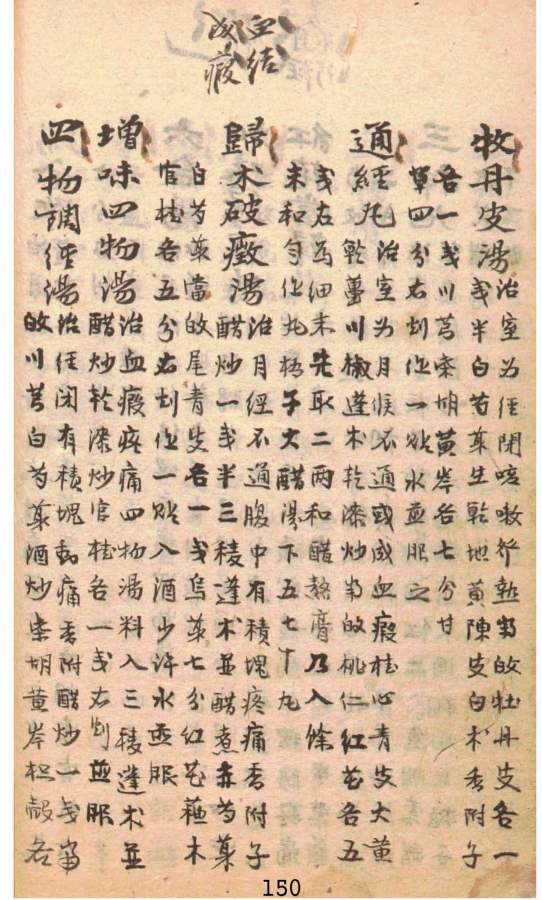 血結
成瘕
牡丹皮湯治室女経閉咳嗽發熱当的牡丹皮各一
戔半白芍薬生乾地黄陳皮白朮香附子
各一戔川芎柴胡黄芩各七分甘
草四分右剉作一貼水煎服之
通經丸治室女月候不通或成血瘕桂心青皮大黄
乾薑川椒蓬朮乾漆炒当的桃仁紅花各五
戔右為細末先取二両和醋熬膏乃入餘
末和匀作丸梧子大醋湯下五七十丸
歸朮破癥湯治月經不通腹中有積塊疼痛香附子
醋炒一戔半三稜蓬朮並醋煮赤芍薬
白芍薬當的尾青皮各一戔烏薬七分紅花蘇木
官桂各五分右剉作一貼入酒少许水煎服
增味四物湯治血瘕疼痛四物湯料入三稜蓬朮並
醋炒乾漆炒官桂各一戔右剉煎服
四物調經湯治経閉有積塊動痛香附醋炒一戔當
的川芎白芍薬酒炒柴胡黄芩枳殼各
150